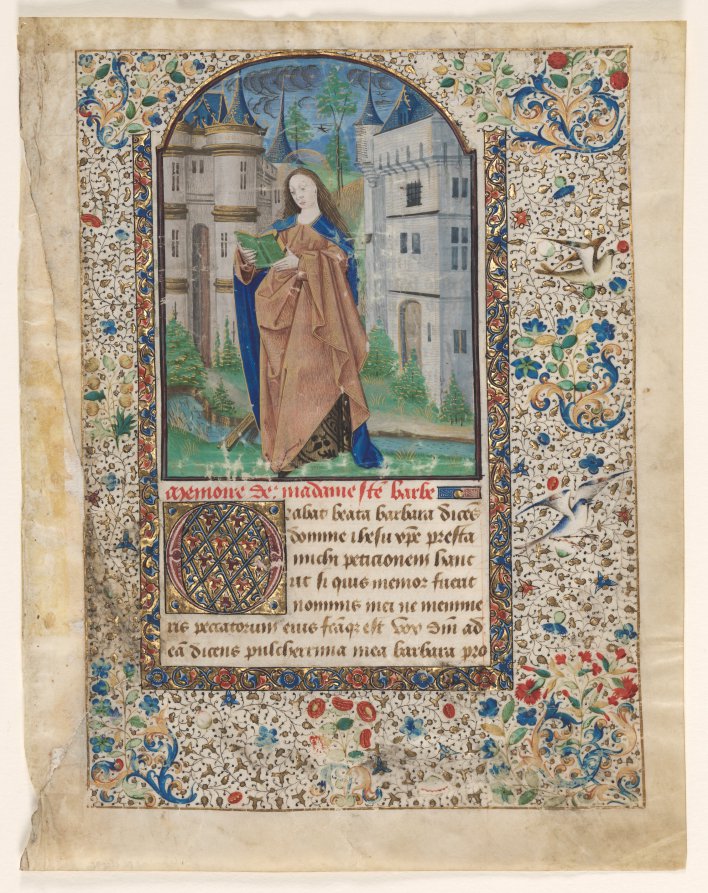 Memoire de madame ste barbe
Orabat beata barbara dicēs
domine ihesu xpe presta
michi peticionem hanc
ut si quis memor fuerit
nominis mei ne memine
ris peccatorum eius fcāq̄ est vox dn̄i ad
eā dicens pulcherrima mea barbara pro